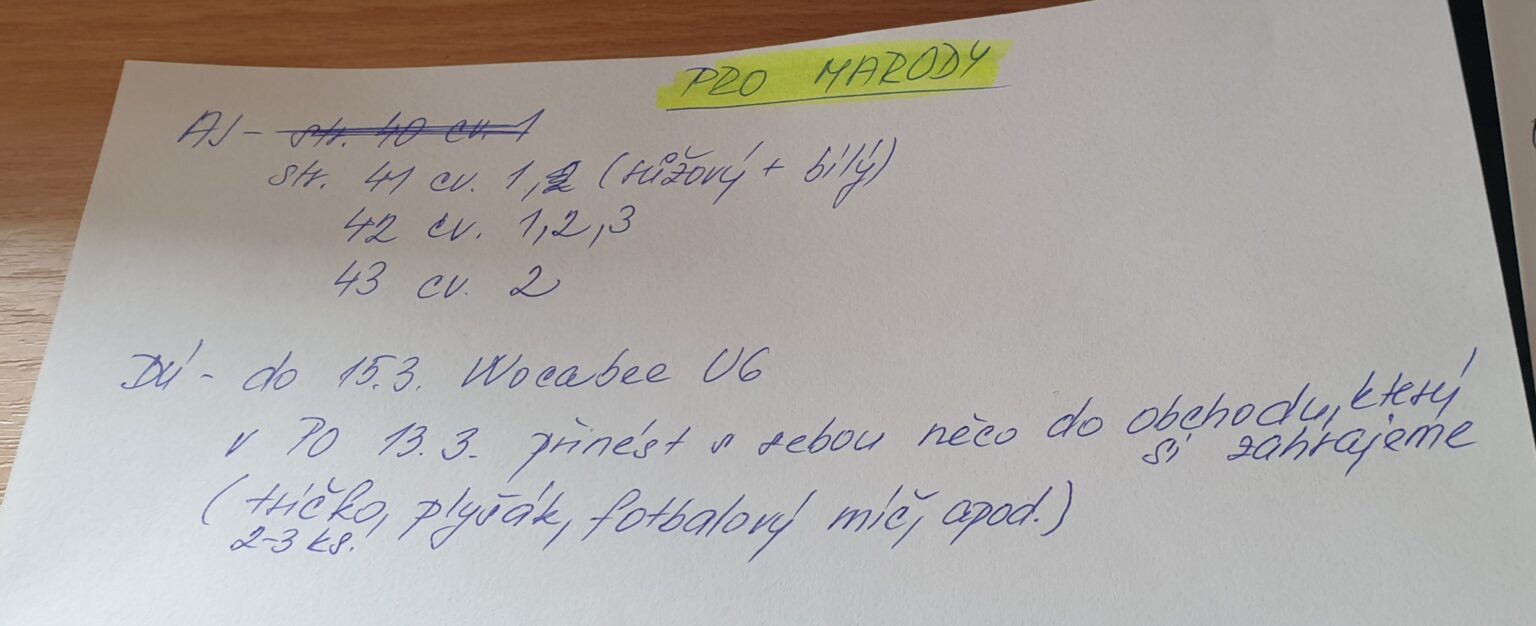 PRO MARODY
AJ - str. 40 cv. 1
str. 41 cv. 1, 2 (růžový + bílý)
42 cv. 1, 2, 3
43 cv. 2
DÚ - do 15.3. Wocabee U6
v PO 13.3. přinést s sebou něco do obchodu, který
si zahrajeme
(tričko, plyšák, fotbalový míč, apod.)
2-3 ks.